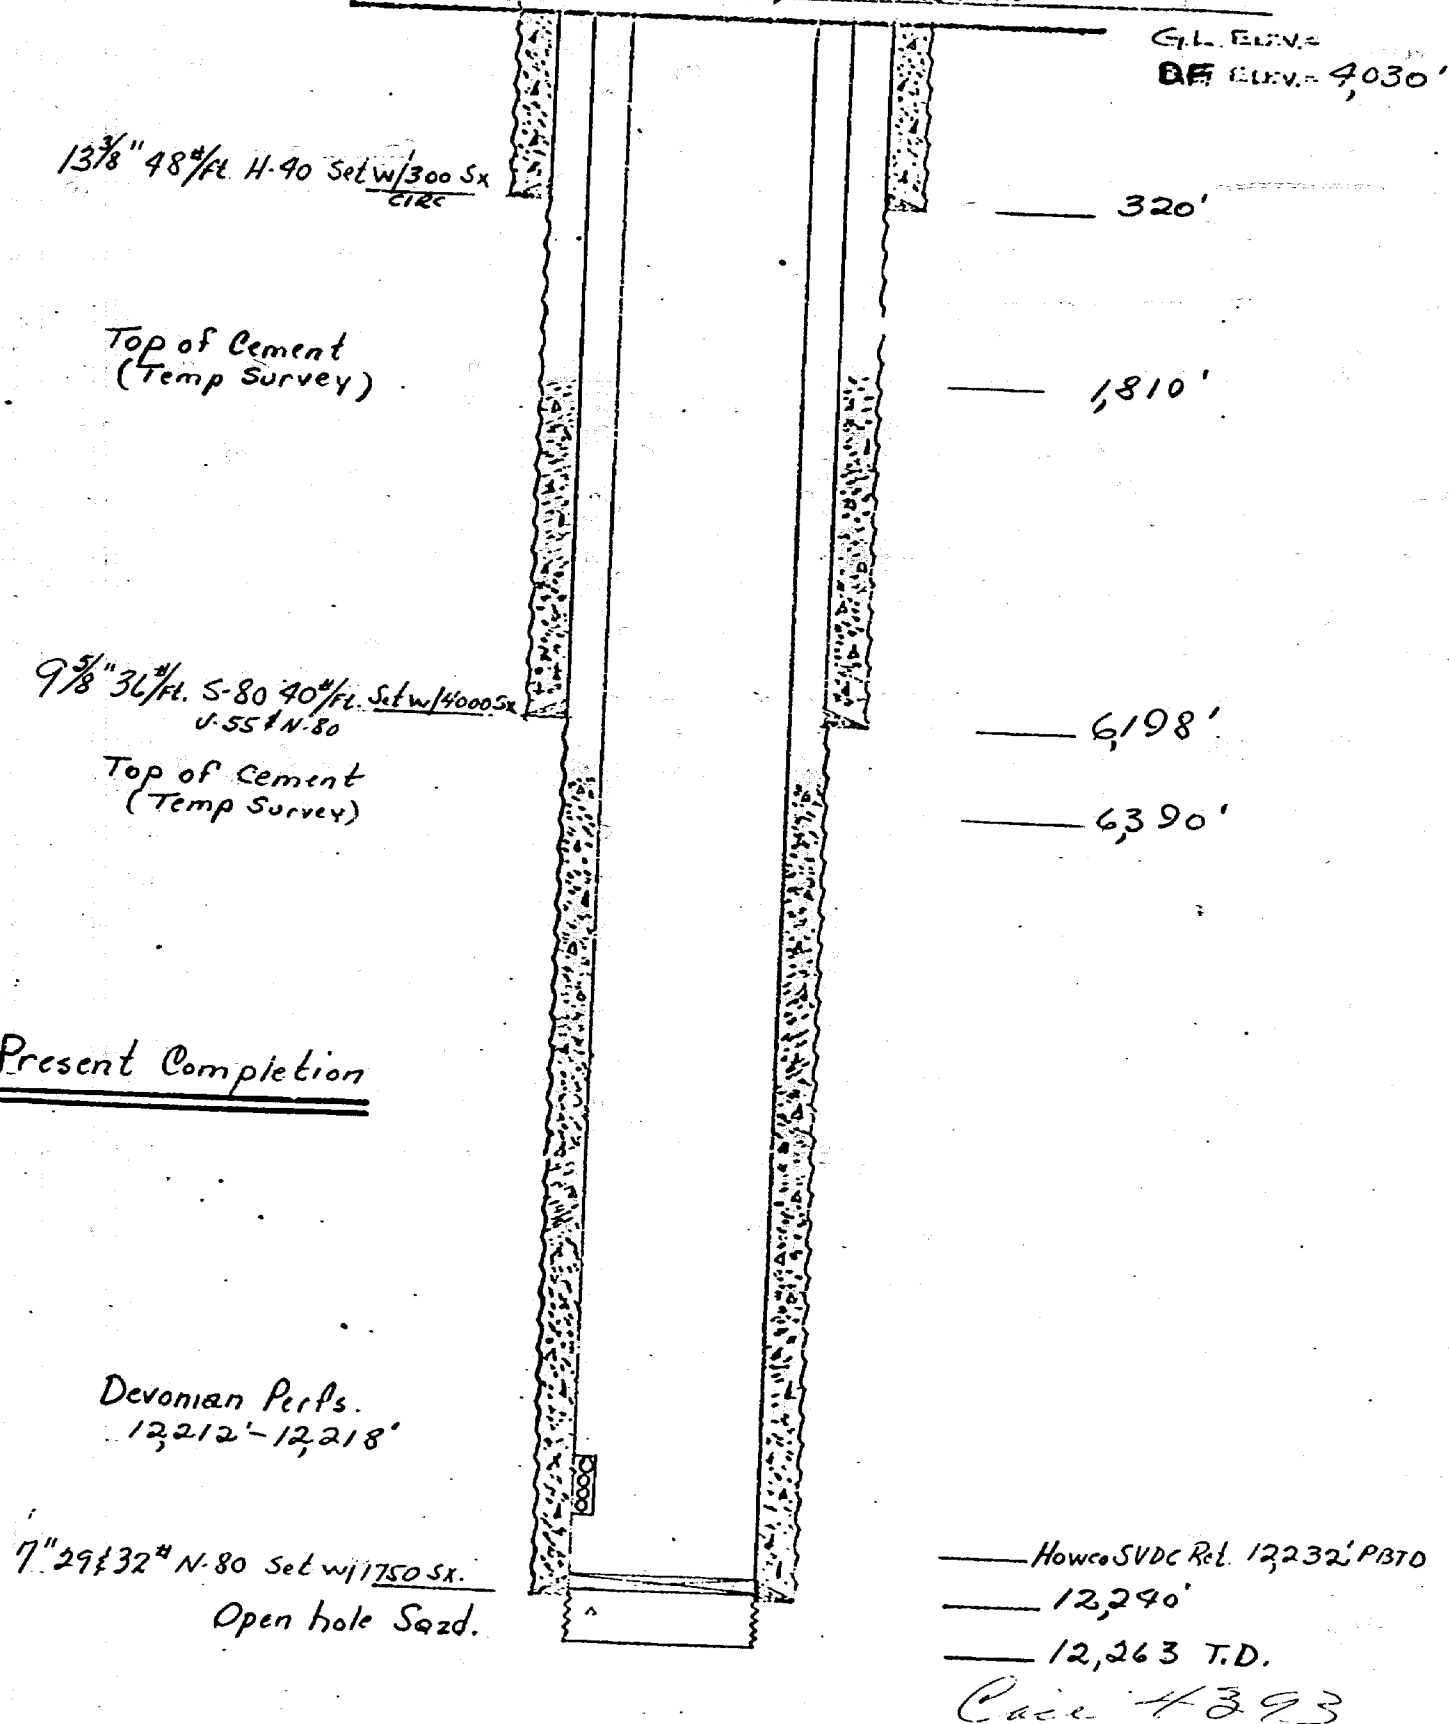 G.L. ELEV.=
DF ELEV.= 4,030'
13 3/8" 48#/ft. H-40 Set w/300 Sx
CIRC
320'
Top of Cement
(Temp Survey)
1,810'
9 5/8" 36#/Ft. S-80 40#/Ft. Set w/4000 Sx
J-55 & N-80
6,198'
Top of Cement
(Temp Survey)
6,390'
Present Completion
Devonian Perfs.
12,212'-12,218'
7" 29 & 32# N-80 Set w/1750 Sx.
Howco SVDC Ret. 12,232' PBTD
12,240'
Open hole Sqzd.
12,263 T.D.
Case 4393